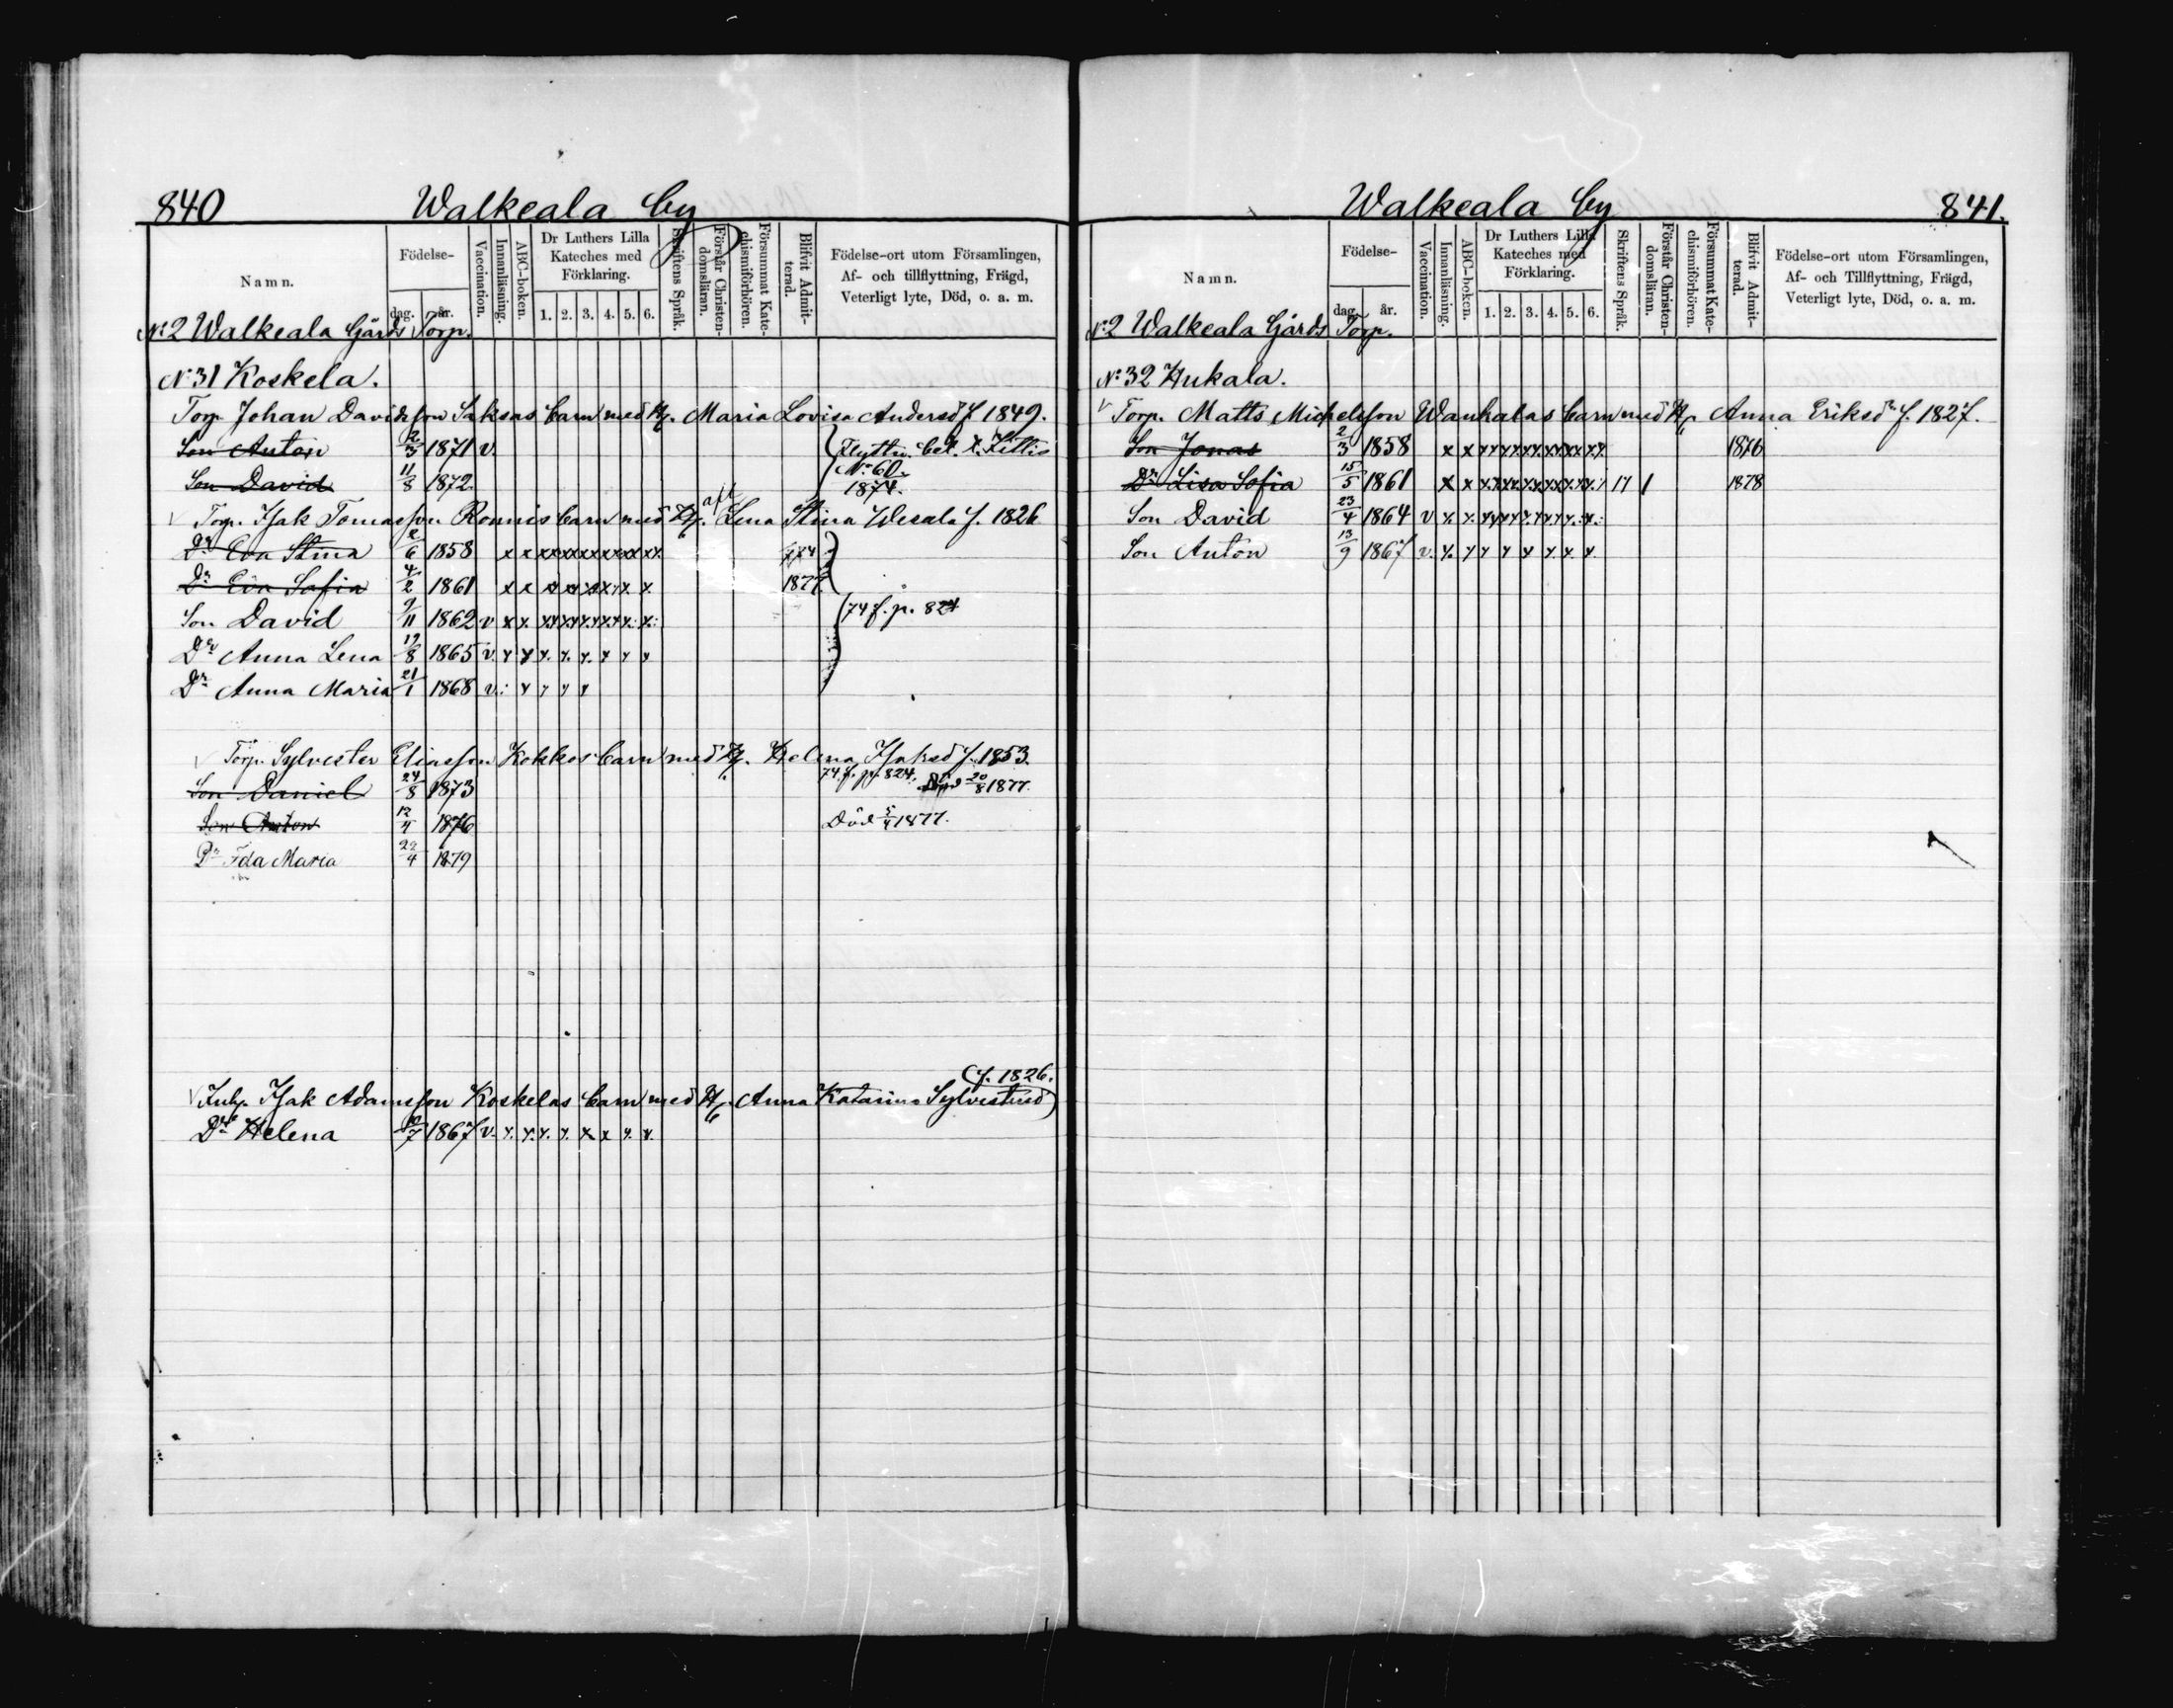 840 Walkeala by
Namn. Födelse- dag. år. Vaccination. Innanläsning. ABC-boken. Dr Luthers Lilla Kateches med Förklaring. 1. 2. 3. 4. 5. 6. Skriftens Språk. Förstår Christendomsläran. Försummat Katechismiförhören. Blifvit Admitterad. Födelse-ort utom Församlingen, Af- och tillflyttning, Frägd, Veterligt lyte, Död, o. a. m.
No 2 Walkeala Gårds Torp.
No 31 Koskela.
Torp. Johan Davidsson Saksas barn med H. Maria Lovisa Andersd f. 1849.
Son Anton 2/3 1871 v. Flyttn. bet. t. Kettis
No 60.
Son David 11/8 1872 1874.
Torp. Isak Tomasson Ronnis barn med afl H. Lena Stina Wesala f. 1826
Dr Eva Stina 2/6 1858 x x x x x x x x x x x x x
Dr Eva Sofia 4/2 1861 x x x x x x x x x x 1877.
Son David 9/11 1862 v x x. x x x x x x x x. x. 74 f. p. 824
Dr Anna Lena 19/8 1865 v. x x x. x. x. x x x
Dr Anna Maria 21/1 1868 v. x x x x
Torp. Sylvester Eliasson Kokkos barn med H. Helena Isaksd f. 1853.
74 f. p. 824.
Son Daniel 24/8 1873 Död 20/8 1877.
Son Anton 12/4 1876 Död 5/4 1877.
Dr Ida Maria 22/4 1879
(f. 1826.
Inh. Isak Adamsson Koskelas barn med H. Anna Katarina Sylvestersd)
Dr Helena 1867 v. x. x. x. x. x x x. x.
Walkeala by 841.
Namn. Födelse- dag. år. Vaccination. Innanläsning. ABC-boken. Dr Luthers Lilla Kateches med Förklaring. 1. 2. 3. 4. 5. 6. Skriftens Språk. Förstår Christendomsläran. Försummat Katechismiförhören. Blifvit Admitterad. Födelse-ort utom Församlingen, Af- och Tillflyttning, Frägd, Veterligt lyte, Död, o. a. m.
No 2 Walkeala Gårds Torp.
No 32 Hukala.
Torp. Matts Michelsson Wanhalas barn med H. Anna Eriksdr f. 1827.
Son Jonas 2/3 1858 x x x x x x x x x x x x x x 1876
Dr Lisa Sofia 15/5 1861 x x x x x x x x x x x x x x 1878
Son David 23/4 1864 v x. x. x x x x. x x x x. x.
Son Anton 13/9 1867 v. x. x x x x x. x. x.